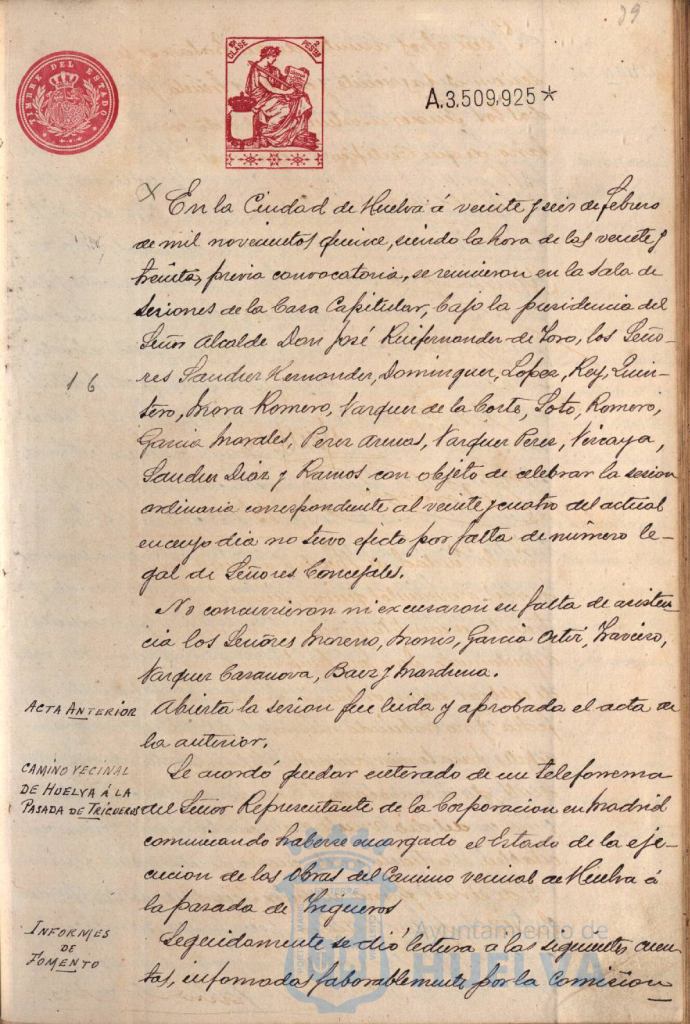 29
TIMBRE DEL ESTADO
CLASE
PESETAS
A.3.509,925*
En la Ciudad de Huelva á veinte y seis de febrero
de mil novecientos quince, siendo la hora de las veinte y
treinta, previa convocatoria, se reunieron en la sala de
sesiones de la Casa Capitular, bajo la presidencia del
Señor Alcalde Don José Ruifernandez de Toro, los Seño-
16
res Sanchez Hernandez, Dominguez, Lopez, Rey, Quin-
tero, Mora Romero, Vazquez de la Corte, Soto, Romero,
Garcia Morales, Perez Arenas, Vazquez Perez, Vizcaya,
Sanchez Diaz y Ramos con objeto de celebrar la sesion
ordinaria correspondiente al veinte y cuatro del actual
en cuyo dia no tuvo efecto por falta de número le-
gal de Señores Concejales.
No concurrieron ni excusaron su falta de asisten-
cia los Señores Moreno, Monis, Garcia Ortiz, Travieso,
Vazquez Casanova, Baez y Marchena.
ACTA ANTERIOR
Abierta la sesion fue leida y aprobada el acta de
la anterior.
CAMINO VECINAL
DE HUELVA Á LA
PASADA DE TRIGUEROS
Se acordó quedar enterado de un telefonema
del Señor Representante de la Corporacion en Madrid
comunicando haberse encargado el Estado de la eje-
cucion de las obras del Camino vecinal de Huelva á
la pasada de Trigueros
INFORMES
DE
FOMENTO
Seguidamente se dió lectura a las siguientes cuen-
tas, informadas faborablemente por la Comision
Ayuntamiento de
HUELVA